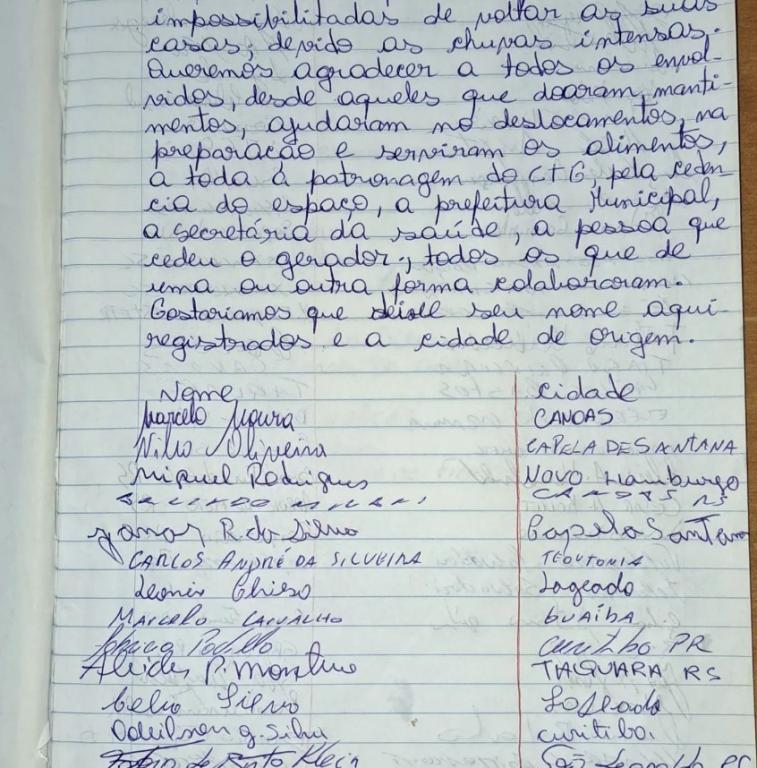 impossibilitadas de voltar as suas
casas, devido as chuvas intensas.
Queremos agradecer a todos os envol-
vidos, desde aqueles que doaram, manti-
mentos, ajudaram no deslocamentos, na
preparacão e serviram os alimentos,
a toda a patronagem do CTG, pela ceden
cia do espaço, a prefeitura Municipal,
a secretária da saúde, a pessoa que
cedeu o gerador, todos os que de
uma ou outra forma colaborcaram.
Gostariamos que deixe seu nome aqui
registrados e a cidade de origem.
Nome cidade
Marcelo Moura CANOAS
Nilio Oliveira CAPELA DE SANTANA
Miguel Rodrigues Novo Hamburgo
CANOAS RS
R. da Silva Capela Santana
CARLOS ANDRÉ DA SILVEIRA TEOUTONIA
Leonir Lageado
MARCELO CARVALHO GUAÍBA
Padilha Curitiba PR
Alcides P. TAQUARA RS
Celio Silva Lageado
g. Silva curitiba.
Klein São